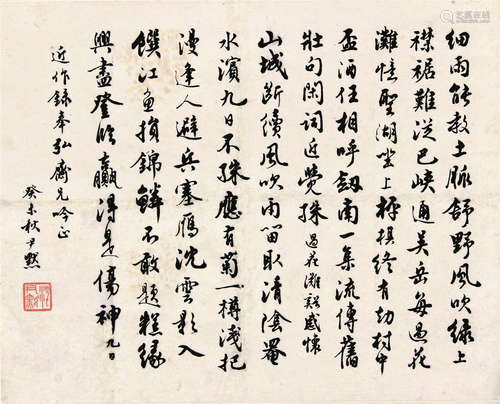 細雨能教土脈舒野風吹綠上
襟裾難從巴峽通吳岳每過花
灘憶聖湖坐上枰棋終有劫村中
盃酒任相呼劔南一集流傳舊
壯句閑詞近覺殊 過花灘谿感懷
山城斷續風吹雨留取清陰罨
水濱九日不殊應有菊一樽淺把
漫逢人避兵塞鴈沈雲影入
饌江魚損錦鱗不敢題糕緣
興盡登臨贏得是傷神 九日
近作錄奉弘齋兄吟正
癸未秋尹默